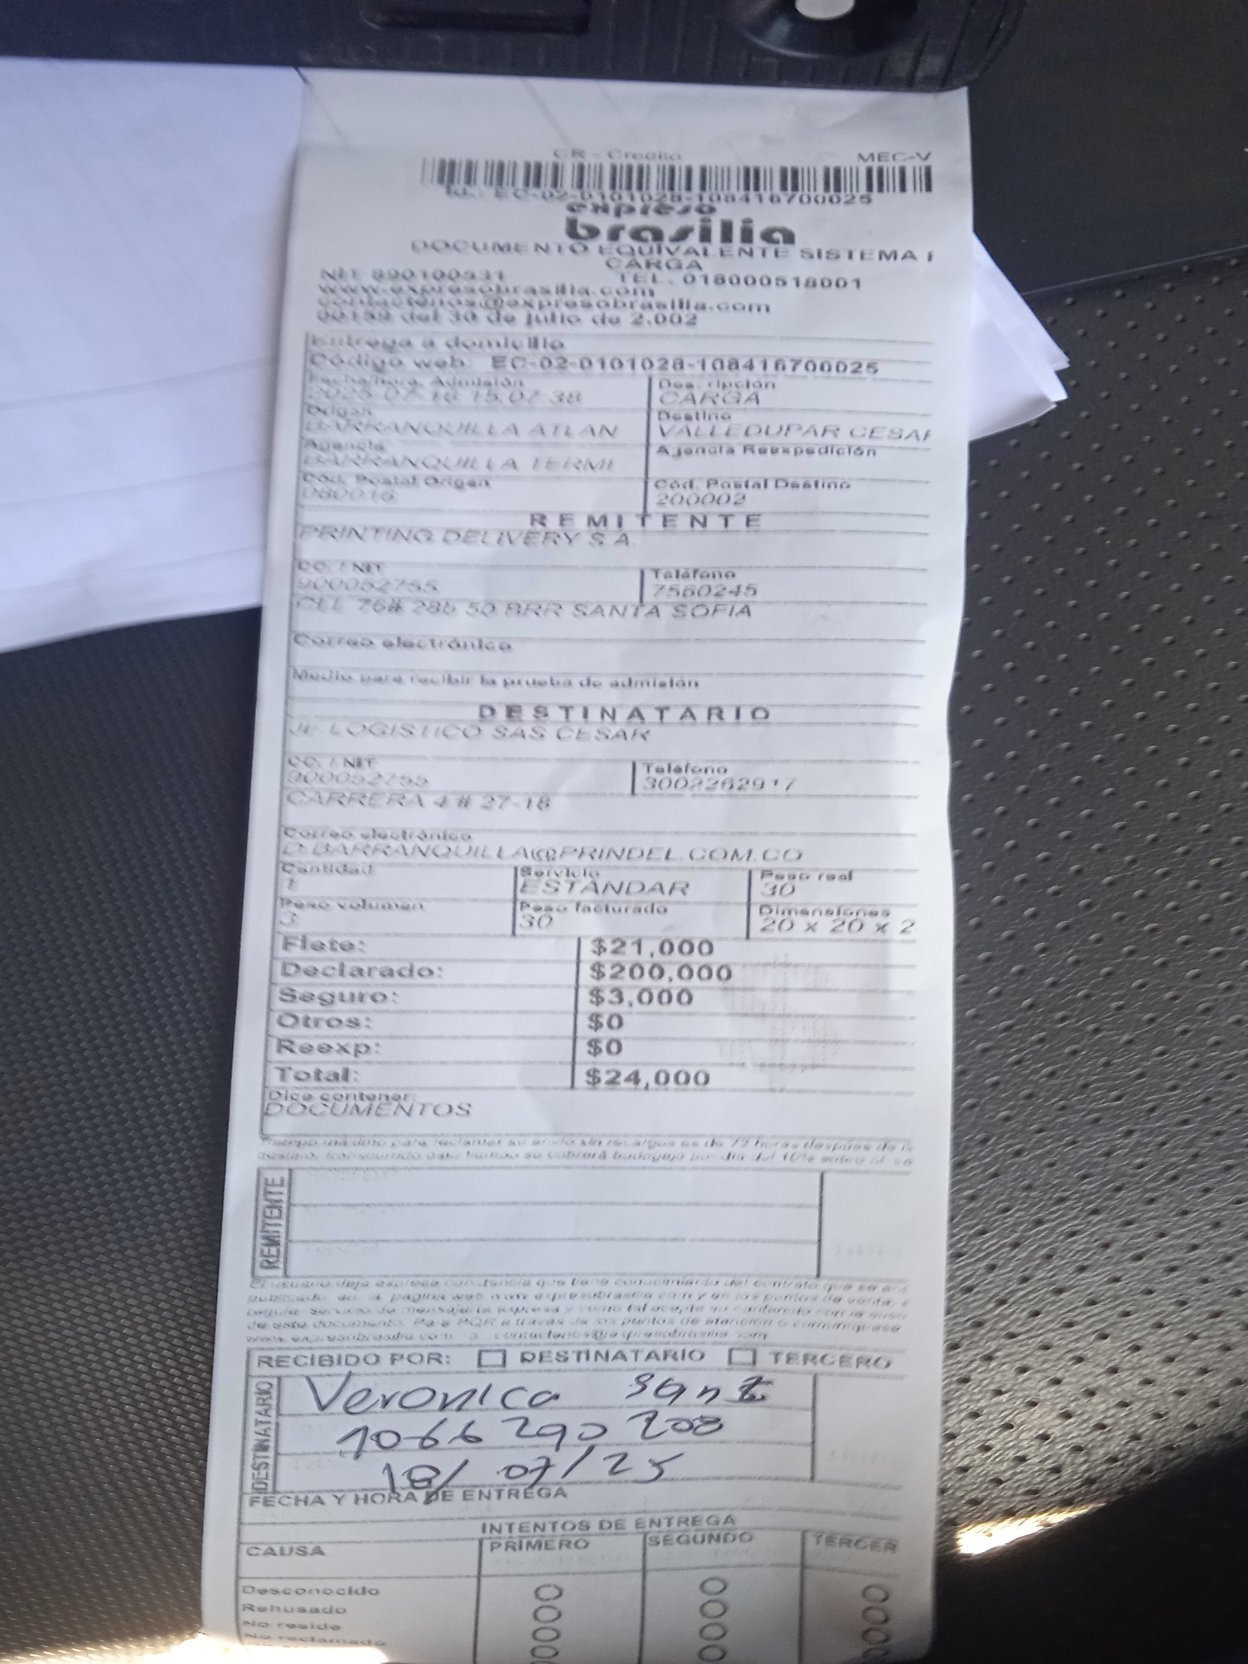 CR - Credito MEC-V
Id.: EC-02-0101028-108416700025
expreso
brasilia
DOCUMENTO EQUIVALENTE SISTEMA
CARGA
NIT 890100531 TEL. 018000518001
www.expresobrasilia.com
contactenos@expresobrasilia.com
00189 del 30 de julio de 2.002
Entrega a domicilio
Código web: EC-02-0101028-108416700025
Fecha/hora Admisión Descripción
2025-07-16 15:07:38 CARGA
Origen Destino
BARRANQUILLA ATLAN VALLEDUPAR CESAR
Agencia Agencia Reexpedición
BARRANQUILLA TERMI
Cód. Postal Origen Cód. Postal Destino
080016 200002
REMITENTE
PRINTING DELIVERY S.A.
CC. / NIT Teléfono
900052755 7560245
CLL 76# 28b 50 BRR SANTA SOFIA
Correo electrónico
Medio para recibir la prueba de admisión
DESTINATARIO
JE LOGISTICO SAS CESAR
CC. / NIT Teléfono
900052755 3002262917
CARRERA 4 # 27-18
Correo electrónico
D.BARRANQUILLA@PRINDEL.COM.CO
Cantidad Servicio Peso real
1 ESTANDAR 30
Peso volumen Peso facturado Dimensiones
3 30 20 x 20 x 2
Flete: $21,000
Declarado: $200,000
Seguro: $3,000
Otros: $0
Reexp: $0
Total: $24,000
Dice contener:
DOCUMENTOS
Tiempo máximo para reclamar su envío sin recargos es de 72 horas después de
destino, transcurrido este tiempo se cobrará bodegaje por día del 10% sobre el
REMITENTE
El usuario deja expresa constancia que tiene conocimiento del contrato que se
publicado en la pagina web www.expresobrasilia.com y en los puntos de venta,
regula servicio de mensajería expresa y como tal acepta su contenido con la
de este documento. Para PQR a traves de los puntos de atención o comuniquese
www.expresobrasilia.com o contactenos@expresobrasilia.com
RECIBIDO POR: DESTINATARIO TERCERO
DESTINATARIO
Veronica
1066290208
18/07/25
FECHA Y HORA DE ENTREGA
INTENTOS DE ENTREGA
CAUSA PRIMERO SEGUNDO TERCER
Desconocido
Rehusado
No reside
No reclamado